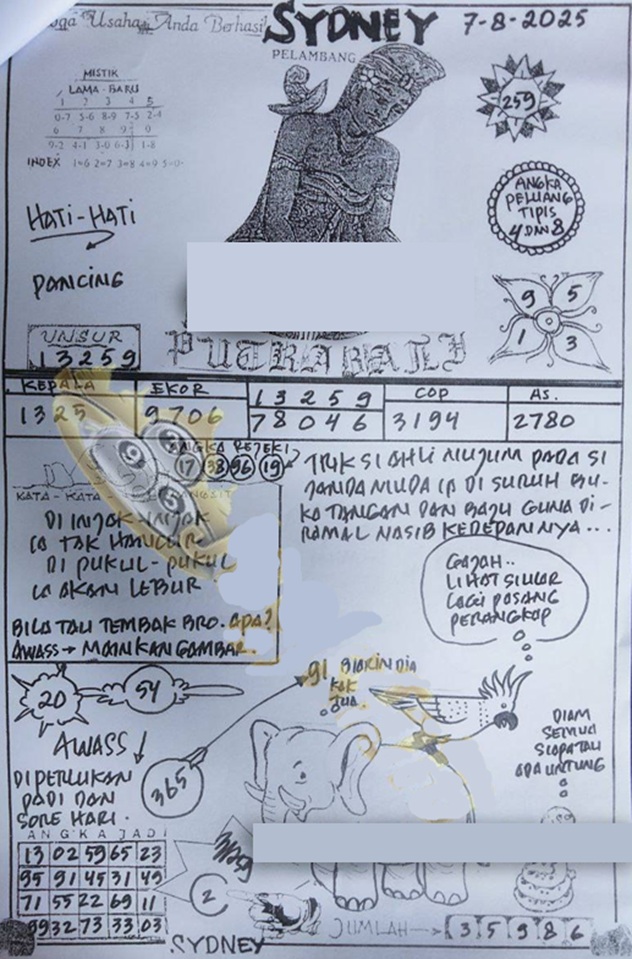 Usaha Anda Berhasil
SYDNEY
7-8-2025
PELAMBANG
MISTIK
LAMA - BARU
1 2 3 4 5
0-7 5-6 8-9 7-5 2-4
6 7 8 9 0
9-2 4-1 3-0 6-3 1-8
INDEX 1=6 2=7 3=8 4=9 5=0
259
ANGKA
PELUANG
TIPIS
4 DAN 8
HATI-HATI
PANCING
9 5
1 3
UNSUR
13259
PUTRA BALI
KEPALA EKOR 13259 COP AS.
1325 9706 78046 3194 2780
ANGKA REJEKI
17 38 96 19
TRIK SI AHLI NUJUM PADA SI
JANDA MUDA IA DI SURUH BU-
KA TANGAN DAN BAJU GUNA DI-
RAMAL NASIB KEDEPANNYA...
KATA - KATA
DI INJAK-INJAK
IA TAK HANCUR
DI PUKUL-PUKUL
IA AKAN LEBUR
BILA TAU TEMBAK BRO. APA?
AWASS → MAINKAN GAMBAR.
GAJAH..
LIHAT SILUAR
LAGI PASANG
PERANGKAP
20
54
91 BIARIN DIA
KAK
DUA
AWASS
365
DIPERLUKAN
PADI DAN
SORE HARI.
DIAM
SEMUA
SIAPA TAU
ADA UNTUNG
ANGKA JADI
13 02 59 65 23
95 91 45 31 49
71 55 22 69 11
99 32 73 33 03
2
JUMLAH → 35986
.SYDNEY